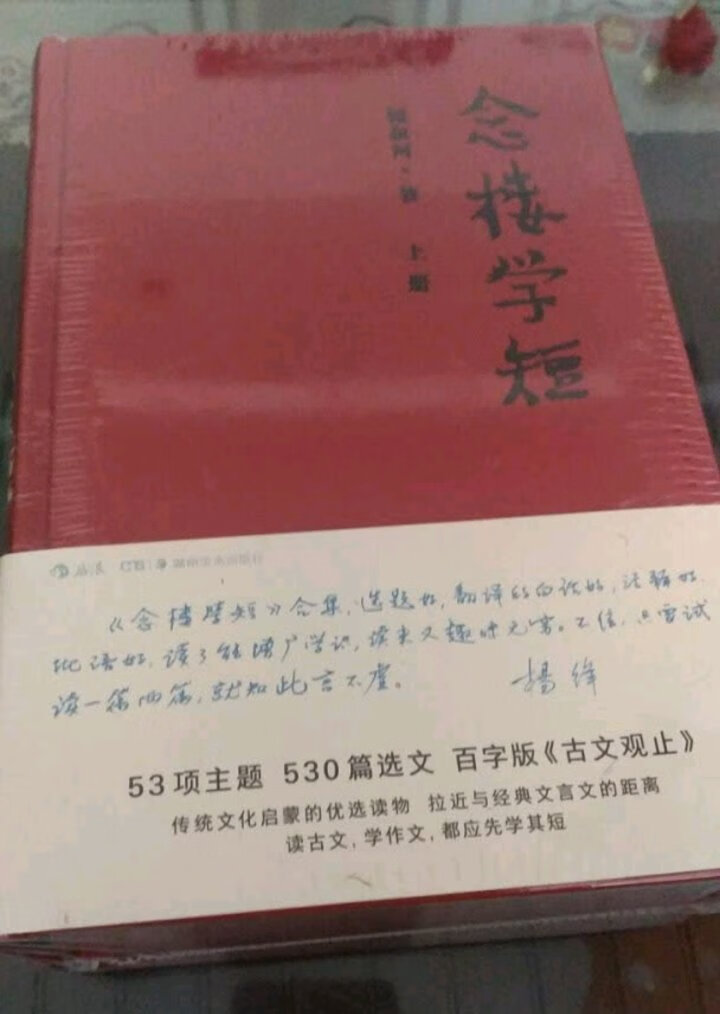 念楼学短
锺叔河·著
上册
后浪
湖南美术出版社
《念楼学短》合集，选题好，翻译的白话好，注释好，
批语好，读了能增广学识，读来又趣味无穷。不信，只需试
读一篇两篇，就知此言不虚。
杨绛
53项主题 530篇选文 百字版《古文观止》
传统文化启蒙的优选读物 拉近与经典文言文的距离
读古文，学作文，都应先学其短